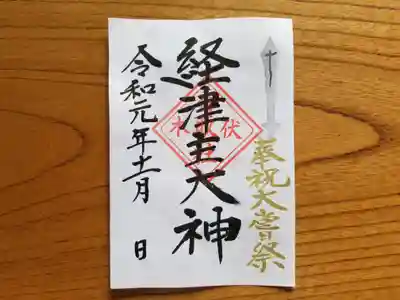 奉祝大嘗祭
経津主大神
令和元年十一月 日